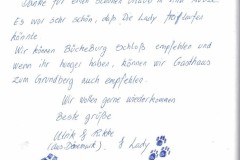 Danke für einen schönen Urlaub
Es war sehr schön, daß Die Lady
könnte.
Wir können Bückeburg Schloß empfehlen und
wenn ihr hunger haben, können wir Gasthaus
zum Grundberg auch empfehlen.
Wir wollen gerne wiederkommen
Beste grüße
Ulrik &
(aus Dänemark). & Lady